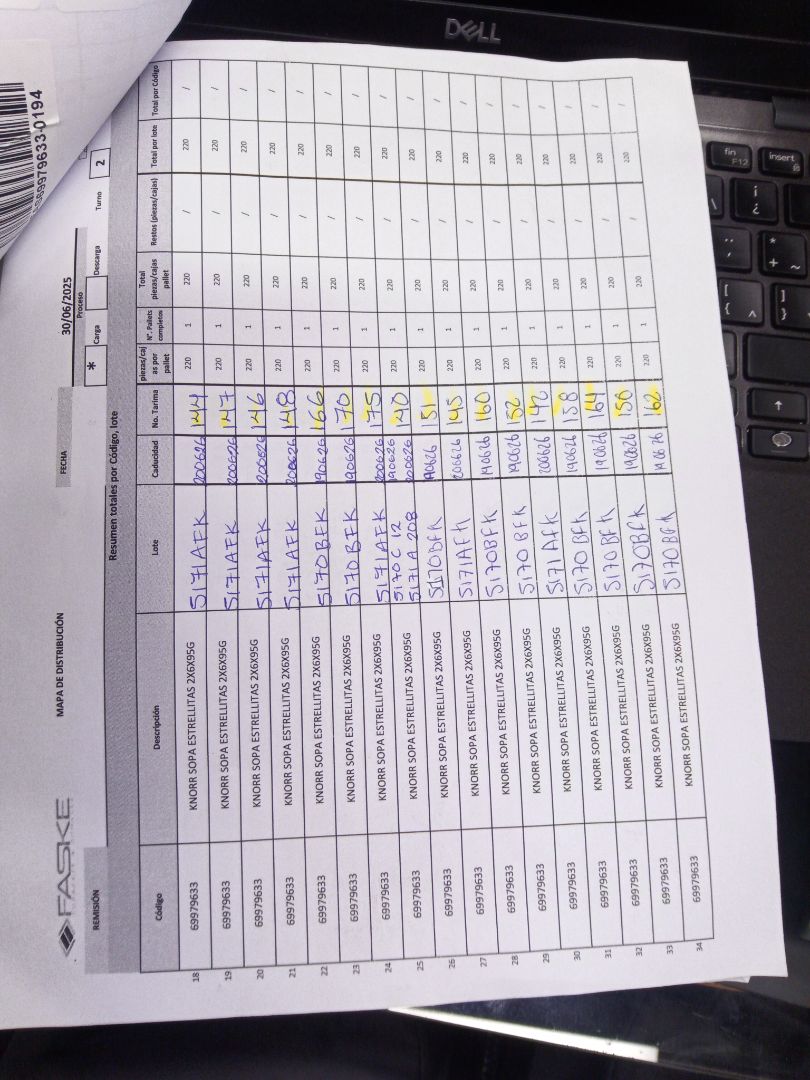 69979633-0194
FASKE
MAPA DE DISTRIBUCIÓN
FECHA 30/06/2025
Proceso
REMISIÓN
* Carga Descarga Turno 2
Resumen totales por Código, lote
Código Descripción Lote Caducidad No. Tarima piezas/caj as por pallet N°. Pallets completos Total piezas/cajas pallet Restos (piezas/cajas) Total por lote Total por Código
18 69979633 KNORR SOPA ESTRELLITAS 2X6X95G 5171AFK 200626 144 220 1 220 / 220 /
19 69979633 KNORR SOPA ESTRELLITAS 2X6X95G 5171AFK 200626 147 220 1 220 / 220 /
20 69979633 KNORR SOPA ESTRELLITAS 2X6X95G 5171AFK 200626 146 220 1 220 / 220 /
21 69979633 KNORR SOPA ESTRELLITAS 2X6X95G 5171AFK 200626 148 220 1 220 / 220 /
22 69979633 KNORR SOPA ESTRELLITAS 2X6X95G 5170BFK 190626 166 220 1 220 / 220 /
23 69979633 KNORR SOPA ESTRELLITAS 2X6X95G 5170BFK 190626 170 220 1 220 / 220 /
24 69979633 KNORR SOPA ESTRELLITAS 2X6X95G 5171AFK 200626 175 220 1 220 / 220 /
25 69979633 KNORR SOPA ESTRELLITAS 2X6X95G 5170C 12 190626 140 220 1 220 / 220 /
5171A 208 200626
26 69979633 KNORR SOPA ESTRELLITAS 2X6X95G 5170BFK 190626 151 220 1 220 / 220 /
27 69979633 KNORR SOPA ESTRELLITAS 2X6X95G 5171AFK 200626 145 220 1 220 / 220 /
28 69979633 KNORR SOPA ESTRELLITAS 2X6X95G 5170BFK 190626 160 220 1 220 / 220 /
29 69979633 KNORR SOPA ESTRELLITAS 2X6X95G 5170BFK 190626 152 220 1 220 / 220 /
30 69979633 KNORR SOPA ESTRELLITAS 2X6X95G 5171AFK 200626 142 220 1 220 / 220 /
31 69979633 KNORR SOPA ESTRELLITAS 2X6X95G 5170BFK 190626 158 220 1 220 / 220 /
32 69979633 KNORR SOPA ESTRELLITAS 2X6X95G 5170BFK 190626 164 220 1 220 / 220 /
33 69979633 KNORR SOPA ESTRELLITAS 2X6X95G 5170BFK 190626 150 220 1 220 / 220 /
34 69979633 KNORR SOPA ESTRELLITAS 2X6X95G 5170BFK 190626 162 220 1 220 / 220 /
DELL
fin F12
insert